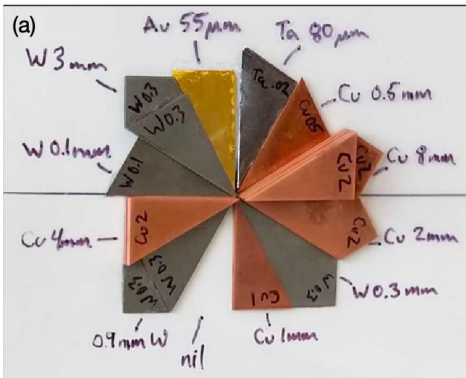 (a)
Au 55μm
Ta 80 μm
W 3mm
W0.3
W0.3
Ta.02
Cu0.5
Cu 0.5mm
W 0.1mm
W0.1
Cu2
Cu2
Cu 8mm
Cu 4mm
Cu2
Cu2
Cu 2mm
W0.3
W0.3
W0.3
W 0.3mm
Cu1
0.9mm W
nil
Cu 1mm